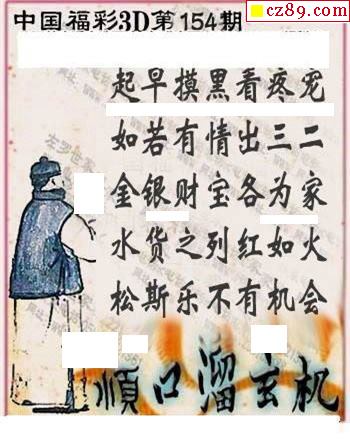 cz89.com
中国福彩3D第154期
起早摸黑看疼宠
如若有情出三二
金银财宝各为家
水货之列红如火
松斯乐不有机会
順口溜玄机